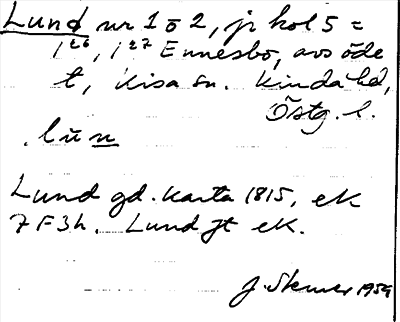 Lund nr 1 o 2, jr kol 5 =
1²⁶, 1²⁷ Ennesbo, avs öde
t, Kisa sn. Kinda hd,
Östg. l.
. lŭn
Lund gd. karta 1815, ek
7 F 3 h. Lund gt ek.
J. 1959